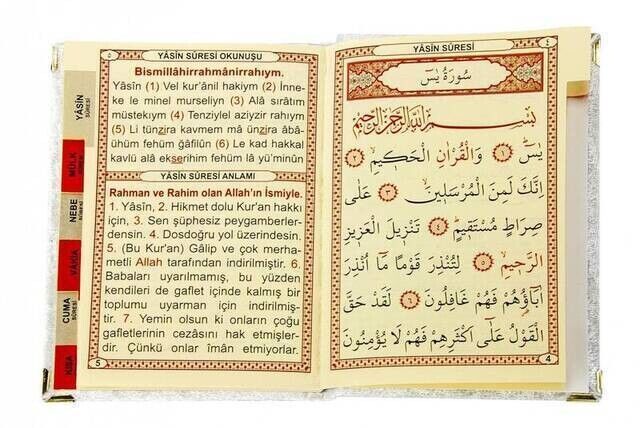 YÂSİN SÛRESİ
MÜLK
NEBE
VÂKIA
CUMA
KISA
٥ YÂSİN SÛRESİ OKUNUŞU
Bismillâhirrahmânirrahıym.
Yâsîn (1) Vel kur'ânil hakiym (2) İnne-
ke le minel murseliyn (3) Alâ sırâtım
müstekıym (4) Tenziylel aziyzir rahıym
(5) Li tünzira kavmem mâ ünzira âbâ-
ühüm fehüm ğâfilûn (6) Le kad hakkal
kavlü alâ ekserihim fehüm lâ yü'minûn
YÂSİN SÛRESİ ANLAMI
Rahman ve Rahim olan Allah'ın İsmiyle.
1. Yâsîn, 2. Hikmet dolu Kur'an hakkı
için, 3. Sen şüphesiz peygamberler-
densin. 4. Dosdoğru yol üzerindesin.
5. (Bu Kur'an) Gâlip ve çok merha-
metli Allah tarafından indirilmiştir. 6.
Babaları uyarılmamış, bu yüzden
kendileri de gaflet içinde kalmış bir
toplumu uyarman için indirilmiş-
tir. 7. Yemin olsun ki onların çoğu
gafletlerinin cezâsını hak etmişler-
dir. Çünkü onlar îmân etmiyorlar.
5
YÂSİN SÛRESİ ٤
سُورَةُ يٰسٓ
بِسْمِ اللّٰهِ الرَّحْمٰنِ الرَّحِيمِ
يٰسٓ ﴿١﴾ وَالْقُرْاٰنِ الْحَكِيمِ ﴿٢﴾
اِنَّكَ لَمِنَ الْمُرْسَلِينَ ﴿٣﴾ عَلٰى
صِرَاطٍ مُسْتَقِيمٍ ﴿٤﴾ تَنْزِيلَ الْعَزِيزِ
الرَّحِيمِ ﴿٥﴾ لِتُنْذِرَ قَوْمًا مَٓا اُنْذِرَ
اٰبَٓاؤُ۬هُمْ فَهُمْ غَافِلُونَ ﴿٦﴾ لَقَدْ حَقَّ
الْقَوْلُ عَلٰٓى اَكْثَرِهِمْ فَهُمْ لَا يُؤْمِنُونَ
4